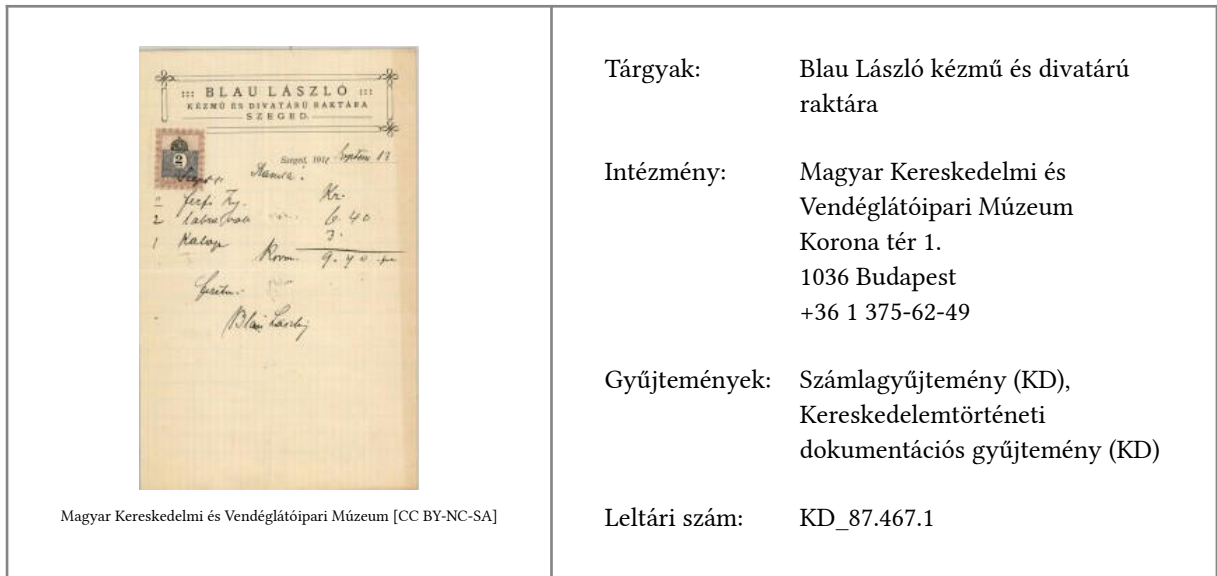 ::: BLAU LÁSZLÓ :::
KÉZMŰ ÉS DIVATÁRÚ RAKTÁRA
SZEGED.
2
Szeged, 191
Számla
Kr.
2 6.40
1 Kalap 3.
9.40
Blau László
Magyar Kereskedelmi és Vendéglátóipari Múzeum [CC BY-NC-SA]
Tárgyak: Blau László kézmű és divatárú
raktára
Intézmény: Magyar Kereskedelmi és
Vendéglátóipari Múzeum
Korona tér 1.
1036 Budapest
+36 1 375-62-49
Gyűjtemények: Számlagyűjtemény (KD),
Kereskedelemtörténeti
dokumentációs gyűjtemény (KD)
Leltári szám: KD_87.467.1